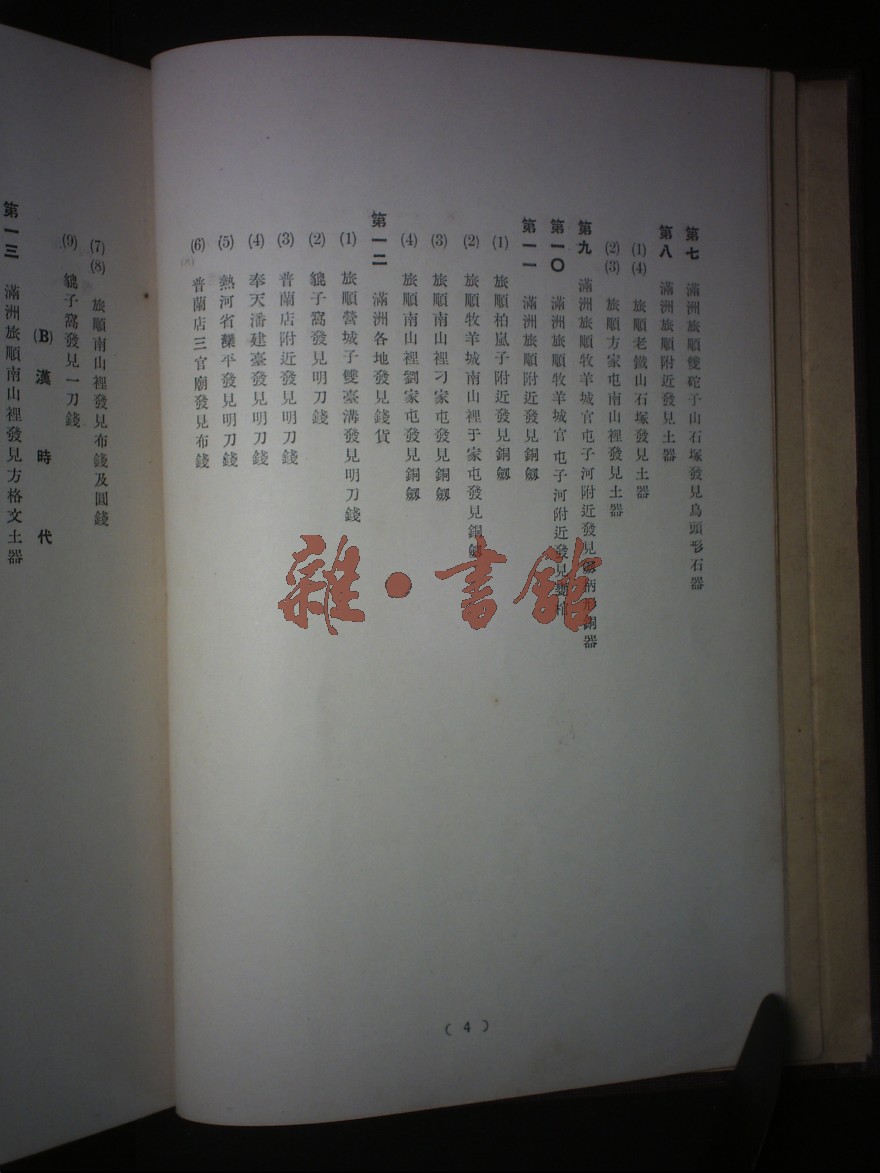 第七 滿洲旅順雙砣子山石塚發見鳥頭形石器
第八 滿洲旅順附近發見土器
(1)(4) 旅順老鐵山石塚發見土器
(2)(3) 旅順方家屯南山裡發見土器
第九 滿洲旅順牧羊城官屯子河附近發見劔柄形銅器
第一〇 滿洲旅順牧羊城官屯子河附近發見甕棺
第一一 滿洲旅順附近發見銅劔
(1) 旅順柏嵐子附近發見銅劔
(2) 旅順牧羊城南山裡于家屯發見銅劔
(3) 旅順南山裡刁家屯發見銅劔
(4) 旅順南山裡劉家屯發見銅劔
第一二 滿洲各地發見錢貨
(1) 旅順營城子雙臺溝發見明刀錢
(2) 貔子窩發見明刀錢
(3) 普蘭店附近發見明刀錢
(4) 奉天潘建臺發見明刀錢
(5) 熱河省灤平發見明刀錢
(6) 普蘭店三官廟發見布錢
( 4 )
(7)(8) 旅順南山裡發見布錢及圓錢
(9) 貔子窩發見一刀錢
(B) 漢時代
第一三 滿洲旅順南山裡發見方格文土器
雜·書館